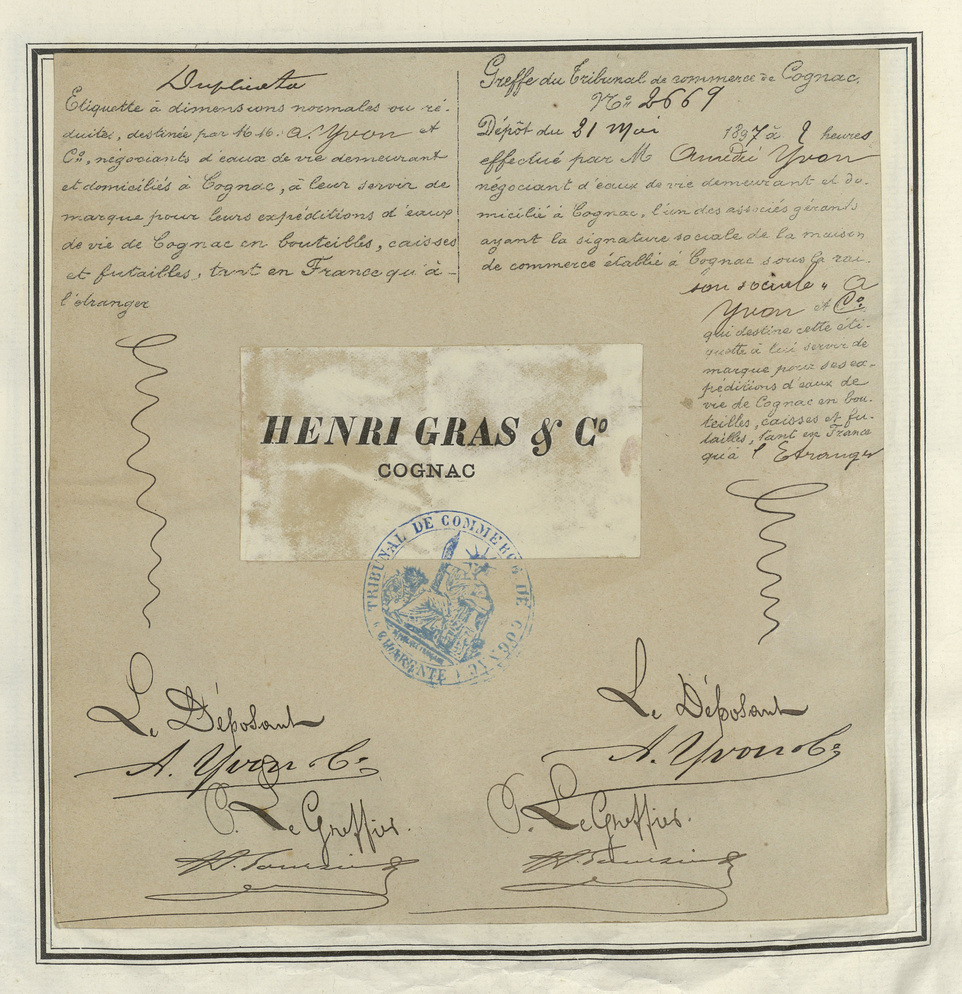 Duplicata
Etiquette à dimensions normales ou ré-
duites, destinée par M.M. A. Yvon et
Co, négociants d'eaux de vie demeurant
et domiciliés à Cognac, à leur servir de
marque pour leurs expéditions d'eaux
de vie de Cognac en bouteilles, caisses
et futailles, tant en France qu'à -
l'étranger
Greffe du Tribunal de commerce de Cognac.
No 2669
Dépôt du 21 Mai 1897 à heures
effectué par M Amédée Yvon
négociant d'eaux de vie demeurant et do-
micilié à Cognac, l'un des associés gérants
ayant la signature sociale de la maison
de commerce établie à Cognac sous la rai-
son sociale " A
Yvon et Co
qui destine cette éti-
quette à lui servir de
marque pour ses ex-
péditions d'eaux de
vie de Cognac en bou-
teilles, caisses et fu-
tailles, tant en France
qu'à l'Etranger
HENRI GRAS & Co
COGNAC
TRIBUNAL DE COMMERCE DE COGNAC
(CHARENTE)
Le Déposant
A. Yvon & Co
P. Le Greffier.
Le Déposant
A. Yvon & Co
P. Le Greffier.